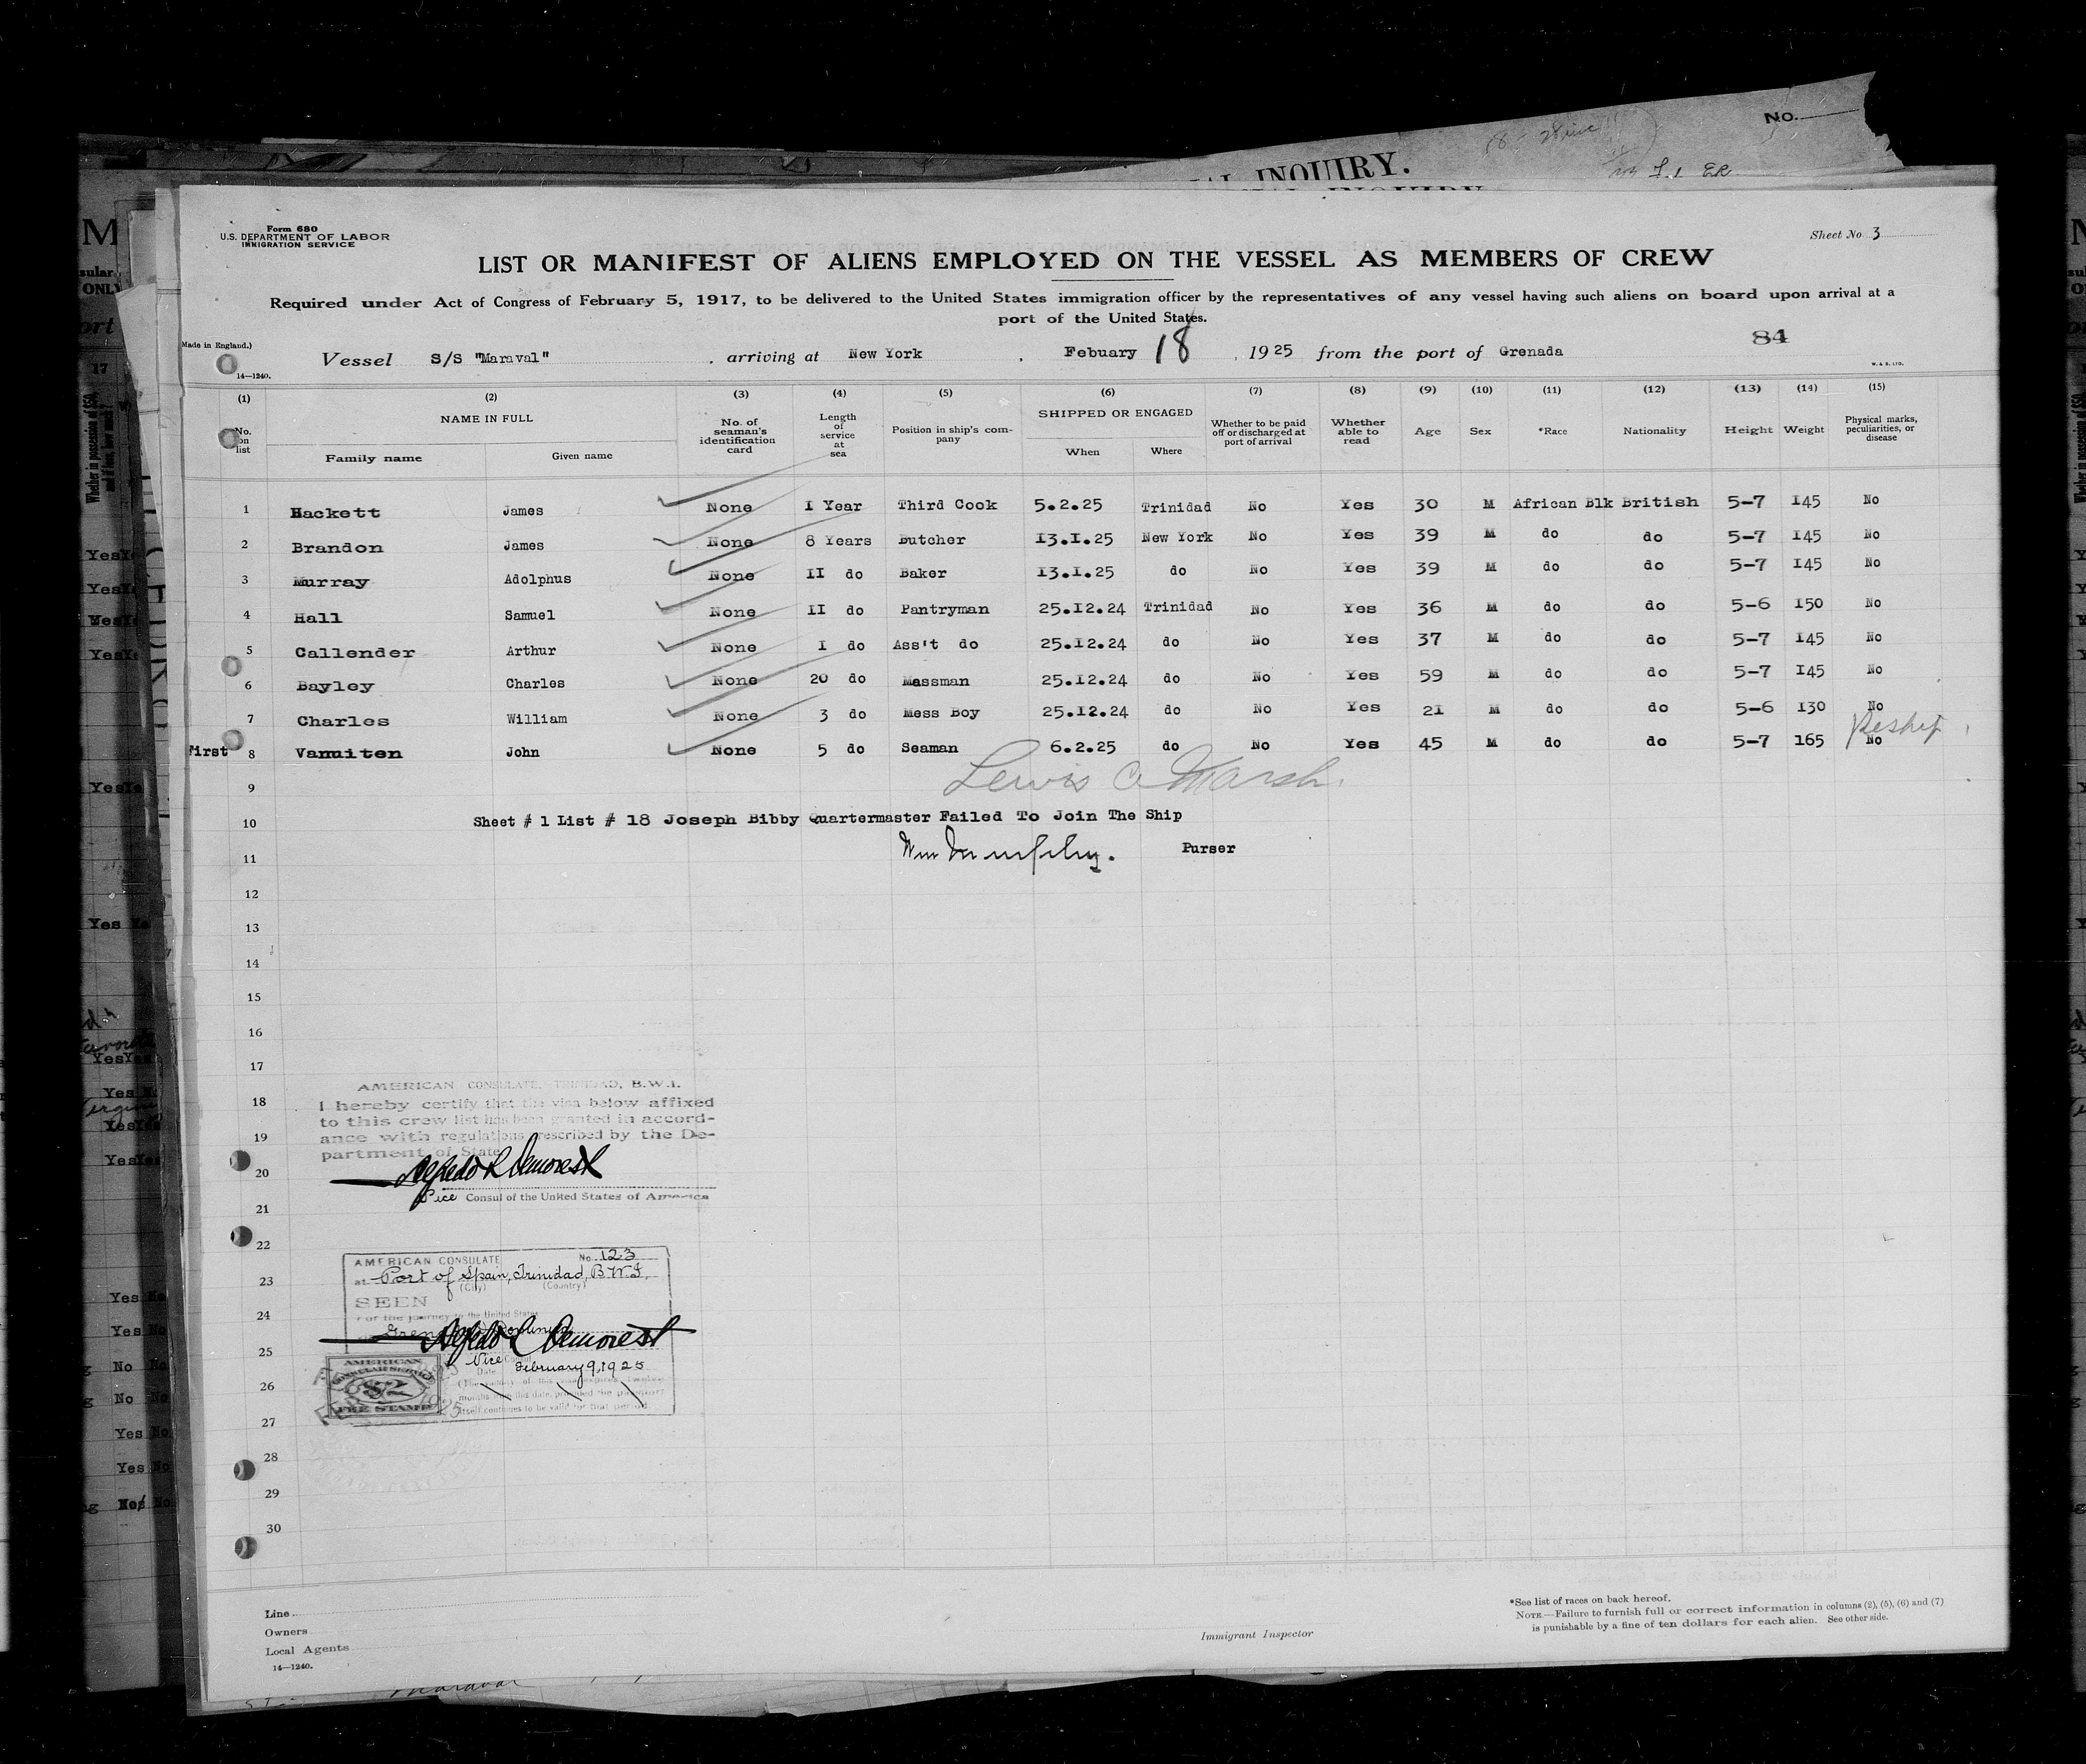 No.
INQUIRY.
Form 680
U.S. DEPARTMENT OF LABOR
IMMIGRATION SERVICE
Sheet No. 3
LIST OR MANIFEST OF ALIENS EMPLOYED ON THE VESSEL AS MEMBERS OF CREW
Required under Act of Congress of February 5, 1917, to be delivered to the United States immigration officer by the representatives of any vessel having such aliens on board upon arrival at a
port of the United States.
84
Made in England.)
Vessel S/S "Maraval" , arriving at New York , Febuary 18 , 1925 from the port of Grenada
14—1240.
W. & S. LTD.
(1) (2) (3) (4) (5) (6) (7) (8) (9) (10) (11) (12) (13) (14) (15)
No. on list NAME IN FULL Family name Given name No. of seaman's identification card Length of service at sea Position in ship's company SHIPPED OR ENGAGED When Where Whether to be paid off or discharged at port of arrival Whether able to read Age Sex *Race Nationality Height Weight Physical marks, peculiarities, or disease
1 Hackett James None I Year Third Cook 5.2.25 Trinidad No Yes 30 M African Blk British 5-7 I45 No
2 Brandon James None 8 Years Butcher I3.I.25 New York No Yes 39 M do do 5-7 I45 No
3 Murray Adolphus None II do Baker I3.I.25 do No Yes 39 M do do 5-7 I45 No
4 Hall Samuel None II do Pantryman 25.I2.24 Trinidad No Yes 36 M do do 5-6 I50 No
5 Callender Arthur None I do Ass't do 25.I2.24 do No Yes 37 M do do 5-7 I45 No
6 Bayley Charles None 20 do Messman 25.I2.24 do No Yes 59 M do do 5-7 I45 No
7 Charles William None 3 do Mess Boy 25.I2.24 do No Yes 21 M do do 5-6 I30 No
Reship
First 8 Vanuiten John None 5 do Seaman 6.2.25 do No Yes 45 M do do 5-7 165 No
9 Lewis C Marsh
10 Sheet # 1 List # 18 Joseph Bibby Quartermaster Failed To Join The Ship
11 Purser
12
13
14
15
16
17
AMERICAN CONSULATE, TRINIDAD, B.W.I.
18 I hereby certify that the visa below affixed
to this crew list has been granted in accord-
19 ance with regulations prescribed by the De-
partment of State
20 Alfredo L Demorest
Vice Consul of the United States of America
21
22
AMERICAN CONSULATE No. 123
23 at Port of Spain, Trinidad, B.W.I.
(City) (Country)
SEEN
24 For the journey to the United States
Alfredo L Demorest
25 Vice Consul
Date February 9, 1925
26 AMERICAN CONSULAR SERVICE $2 FEE STAMP
(The validity of this visa expires twelve
months from this date, provided the passport
itself continues to be valid for that period.
27
28
29
30
Line
Owners
Local Agents
14—1240.
Immigrant Inspector
*See list of races on back hereof.
NOTE.—Failure to furnish full or correct information in columns (2), (5), (6) and (7)
is punishable by a fine of ten dollars for each alien. See other side.